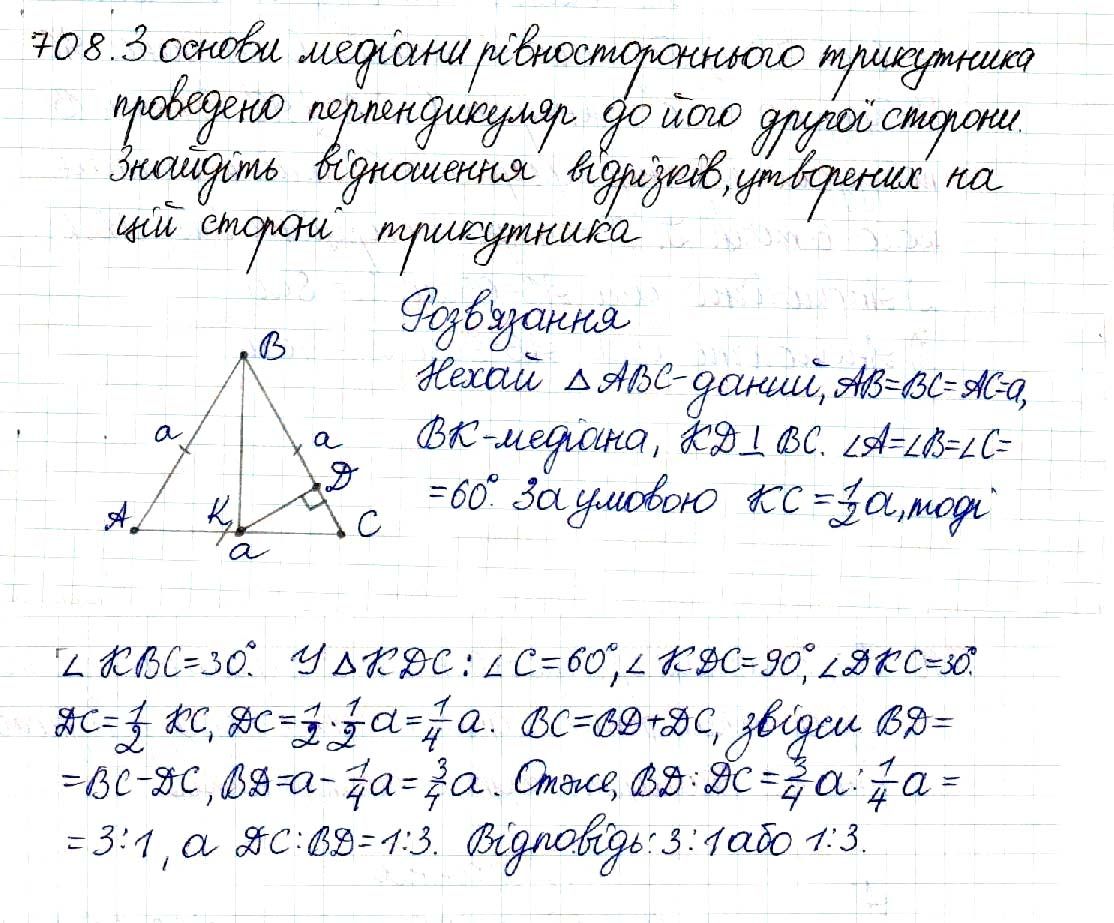 708. З основи медіани рівностороннього трикутника
проведено перпендикуляр до його другої сторони.
Знайдіть відношення відрізків, утворених на
цій стороні трикутника
Розв'язання
B
Нехай △ABC - даний, AB=BC=AC=a,
a
a
BK - медіана, KD⊥BC. ∠A=∠B=∠C=
D
=60°. За умовою KC = 1/2 a, тоді
A
K
C
a
∠KBC=30°. У △KDC: ∠C=60°, ∠KDC=90°, ∠DKC=30°.
DC=1/2 KC, DC=1/2·1/2 a=1/4 a. BC=BD+DC, звідси BD=
=BC-DC, BD=a-1/4 a=3/4 a. Отже, BD:DC=3/4 a:1/4 a=
=3:1, а DC:BD=1:3. Відповідь: 3:1 або 1:3.